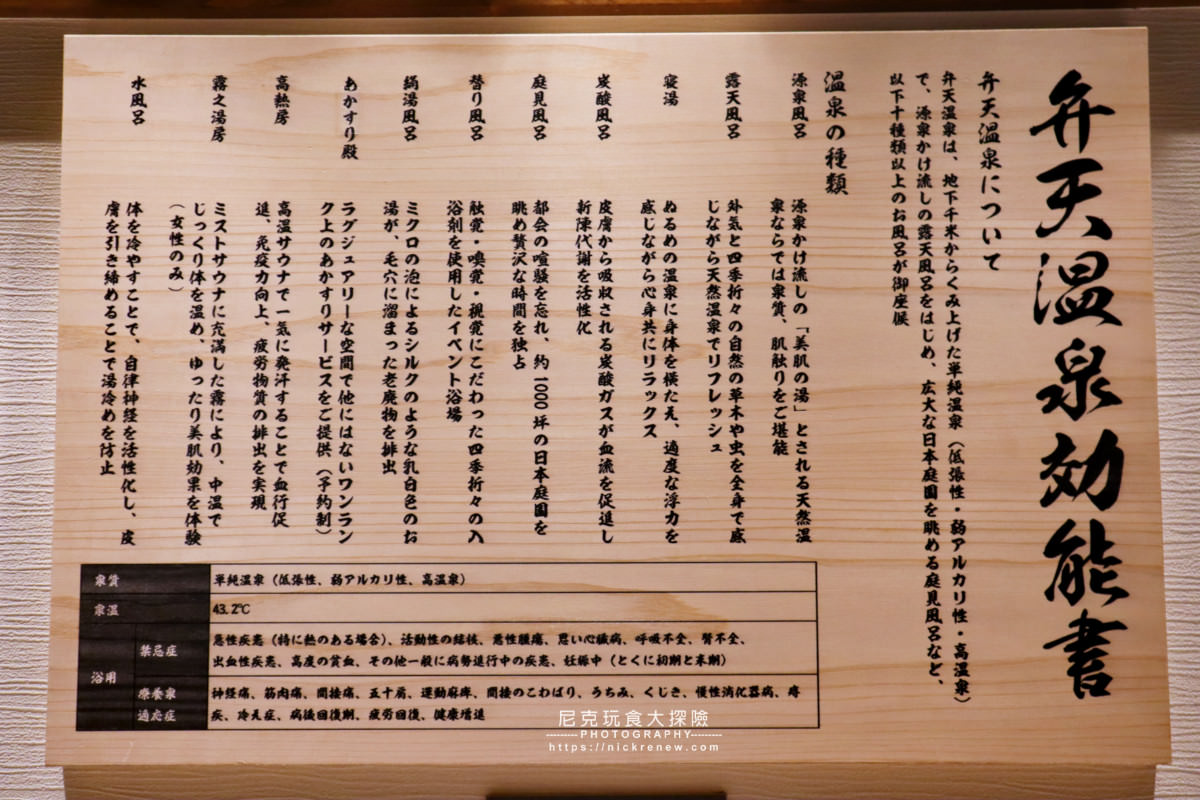 弁天温泉効能書
弁天温泉について
弁天温泉は、地下千米からくみ上げた単純温泉（低張性・弱アルカリ性・高温泉）
で、源泉かけ流しの露天風呂をはじめ、広大な日本庭園を眺める庭見風呂など、
以下十種類以上のお風呂が御座候
温泉の種類
源泉風呂
源泉かけ流しの「美肌の湯」とされる天然温
泉ならでは泉質、肌触りをご堪能
露天風呂
外気と四季折々の自然の草木や虫を全身で感
じながら天然温泉でリフレッシュ
寝湯
ぬるめの温泉に身体を横たえ、適度な浮力を
感じながら心身共にリラックス
炭酸風呂
皮膚から吸収される炭酸ガスが血流を促進し
新陳代謝を活性化
庭見風呂
都会の喧騒を忘れ、約1000坪の日本庭園を
眺め贅沢な時間を独占
替り風呂
触覚・嗅覚・視覚にこだわった四季折々の入
浴剤を使用したイベント浴場
絹湯風呂
ミクロの泡によるシルクのような乳白色のお
湯が、毛穴に溜まった老廃物を排出
あかすり殿
ラグジュアリーな空間で他にはないワンラン
ク上のあかすりサービスをご提供（予約制）
高熱房
高温サウナで一気に発汗することで血行促
進、免疫力向上、疲労物質の排出を実現
霧之湯房
ミストサウナに充満した霧により、中温で
じっくり体を温め、ゆったり美肌効果を体験
（女性のみ）
水風呂
体を冷やすことで、自律神経を活性化し、皮
膚を引き締めることで湯冷めを防止
泉質
単純温泉（低張性、弱アルカリ性、高温泉）
泉温
43.2℃
浴用
禁忌症
急性疾患（特に熱のある場合）、活動性の結核、悪性腫瘍、思い心臓病、呼吸不全、腎不全、
出血性疾患、高度の貧血、その他一般に病勢進行中の疾患、妊娠中（とくに初期と末期）
療養泉
適応症
神経痛、筋肉痛、間接痛、五十肩、運動麻痺、間接のこわばり、うちみ、くじき、慢性消化器病、痔
疾、冷え症、病後回復期、疲労回復、健康増進
尼克玩食大探險
PHOTOGRAPHY
https://nickrenew.com